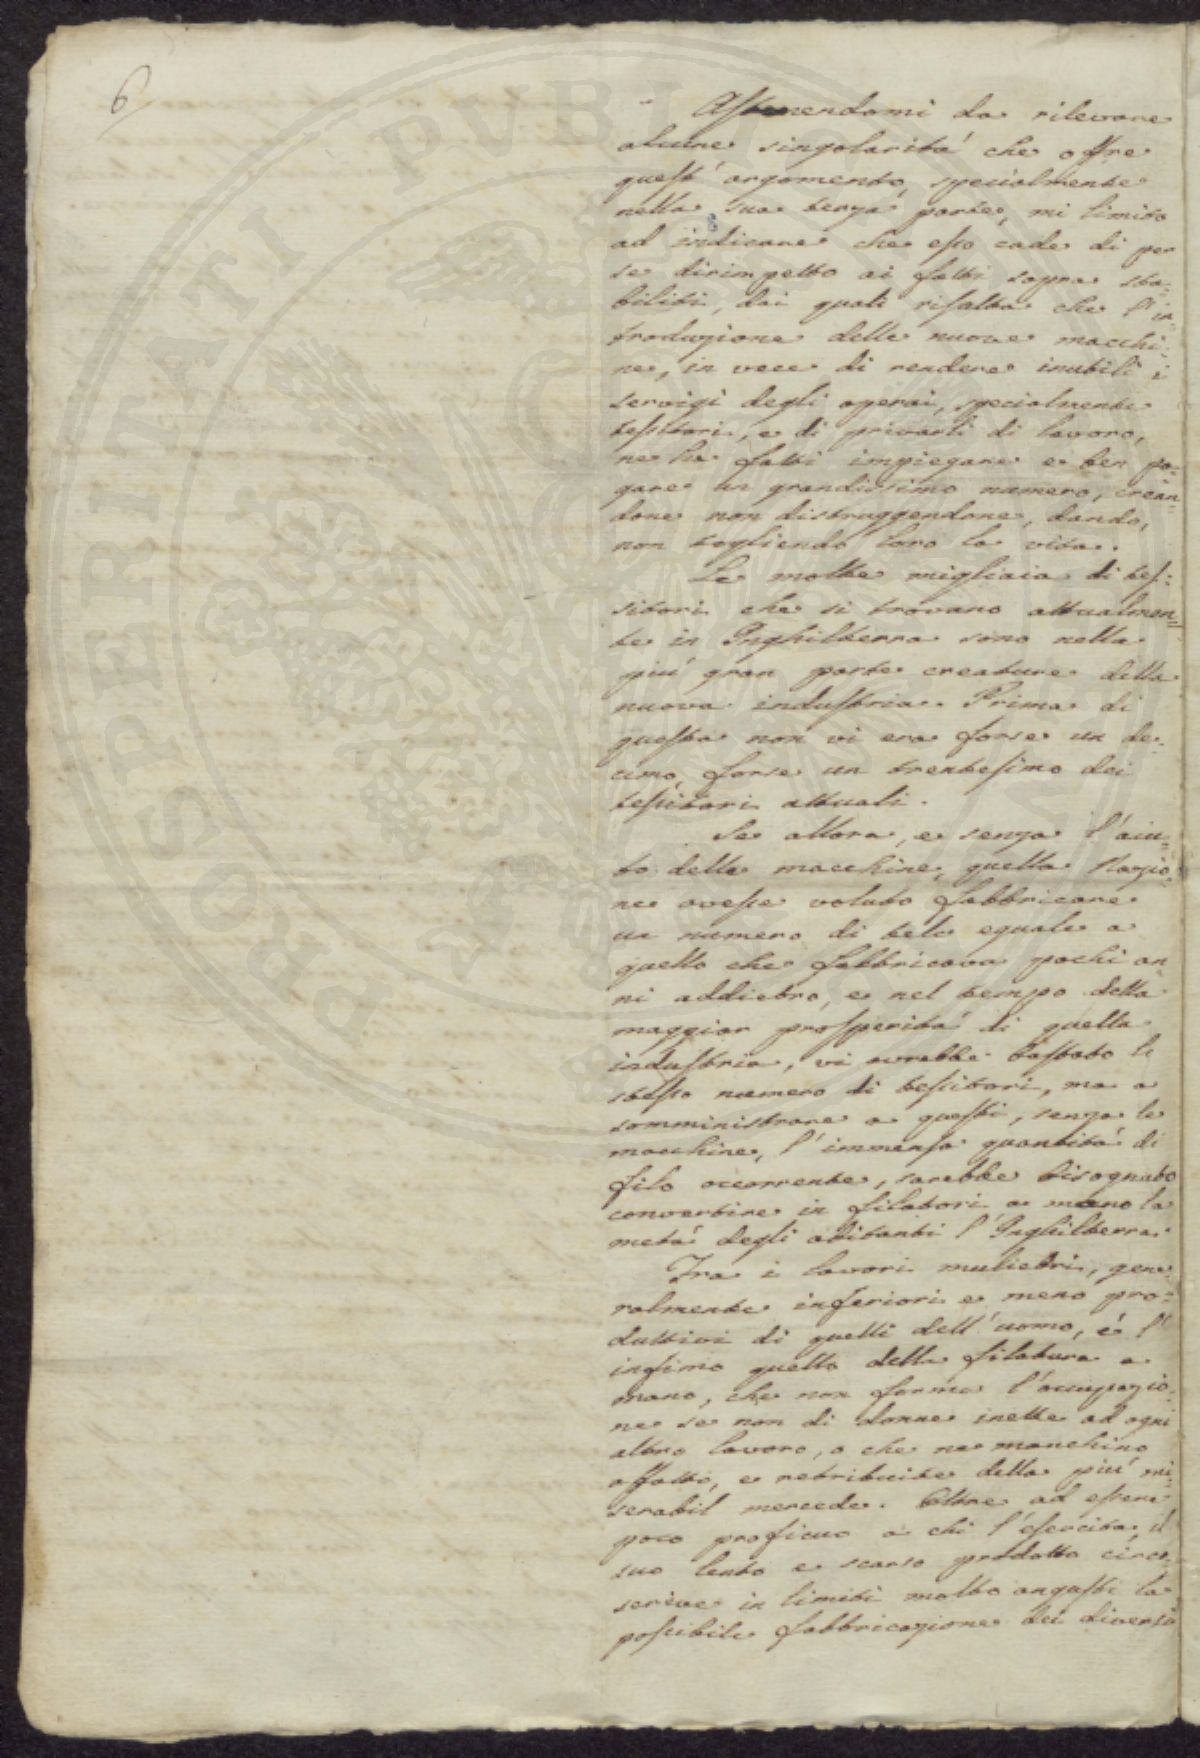 6
Astenendomi da rilevare
alcune singolarità che offre
quest'argomento, specialmente
nella sua terza parte, mi limito
ad indicare che esso cade di per
se dirimpetto ai fatti sopra sta-
biliti, dai quali risalta che l'in-
troduzione delle nuove macchi-
ne, in vece di rendere inutili i
servigi degli operai, specialmente
tessitori, e di privarli di lavoro,
ne ha fatti impiegare e ben pa-
gare un grandissimo numero, crean-
done non distruggendone, dando,
non togliendo loro la vita.
Le molte migliaia di tes-
sitori che si trovano attualmen-
te in Inghilterra sono nella
più gran parte creature della
nuova industria. Prima di
questa non vi era forse un de-
cimo, forse un trentesimo dei
tessitori attuali.
Se allora, e senza l'aiu-
to delle macchine, quella Nazio-
ne avesse voluto fabbricare
un numero di tele eguale a
quello che fabbricava pochi an
ni addietro, e nel tempo della
maggior prosperità di quella
industria, vi avrebbe bastato lo
stesso numero di tessitori, ma a
somministrare a questi, senza le
macchine, l'immensa quantità di
filo occorrente, sarebbe bisognato
convertire in filatori a meno la
metà degli abitanti l'Inghilterra.
Fra i lavori muliebri, gene-
ralmente inferiori e meno pro-
duttivi di quelli dell'uomo, è l'
infimo quello della filatura a
mano, che non forma l'occupazio-
ne se non di donne inette ad ogni
altro lavoro, o che ne manchino
affatto, e retribuite della più mi-
serabil mercede. Oltre ad essere
poco proficuo a chi l'esercita, il
suo lento e scarso prodotto circo-
scrive in limiti molto angusti la
possibile fabbricazione dei diversi
PROSPERITATI PVBLIC